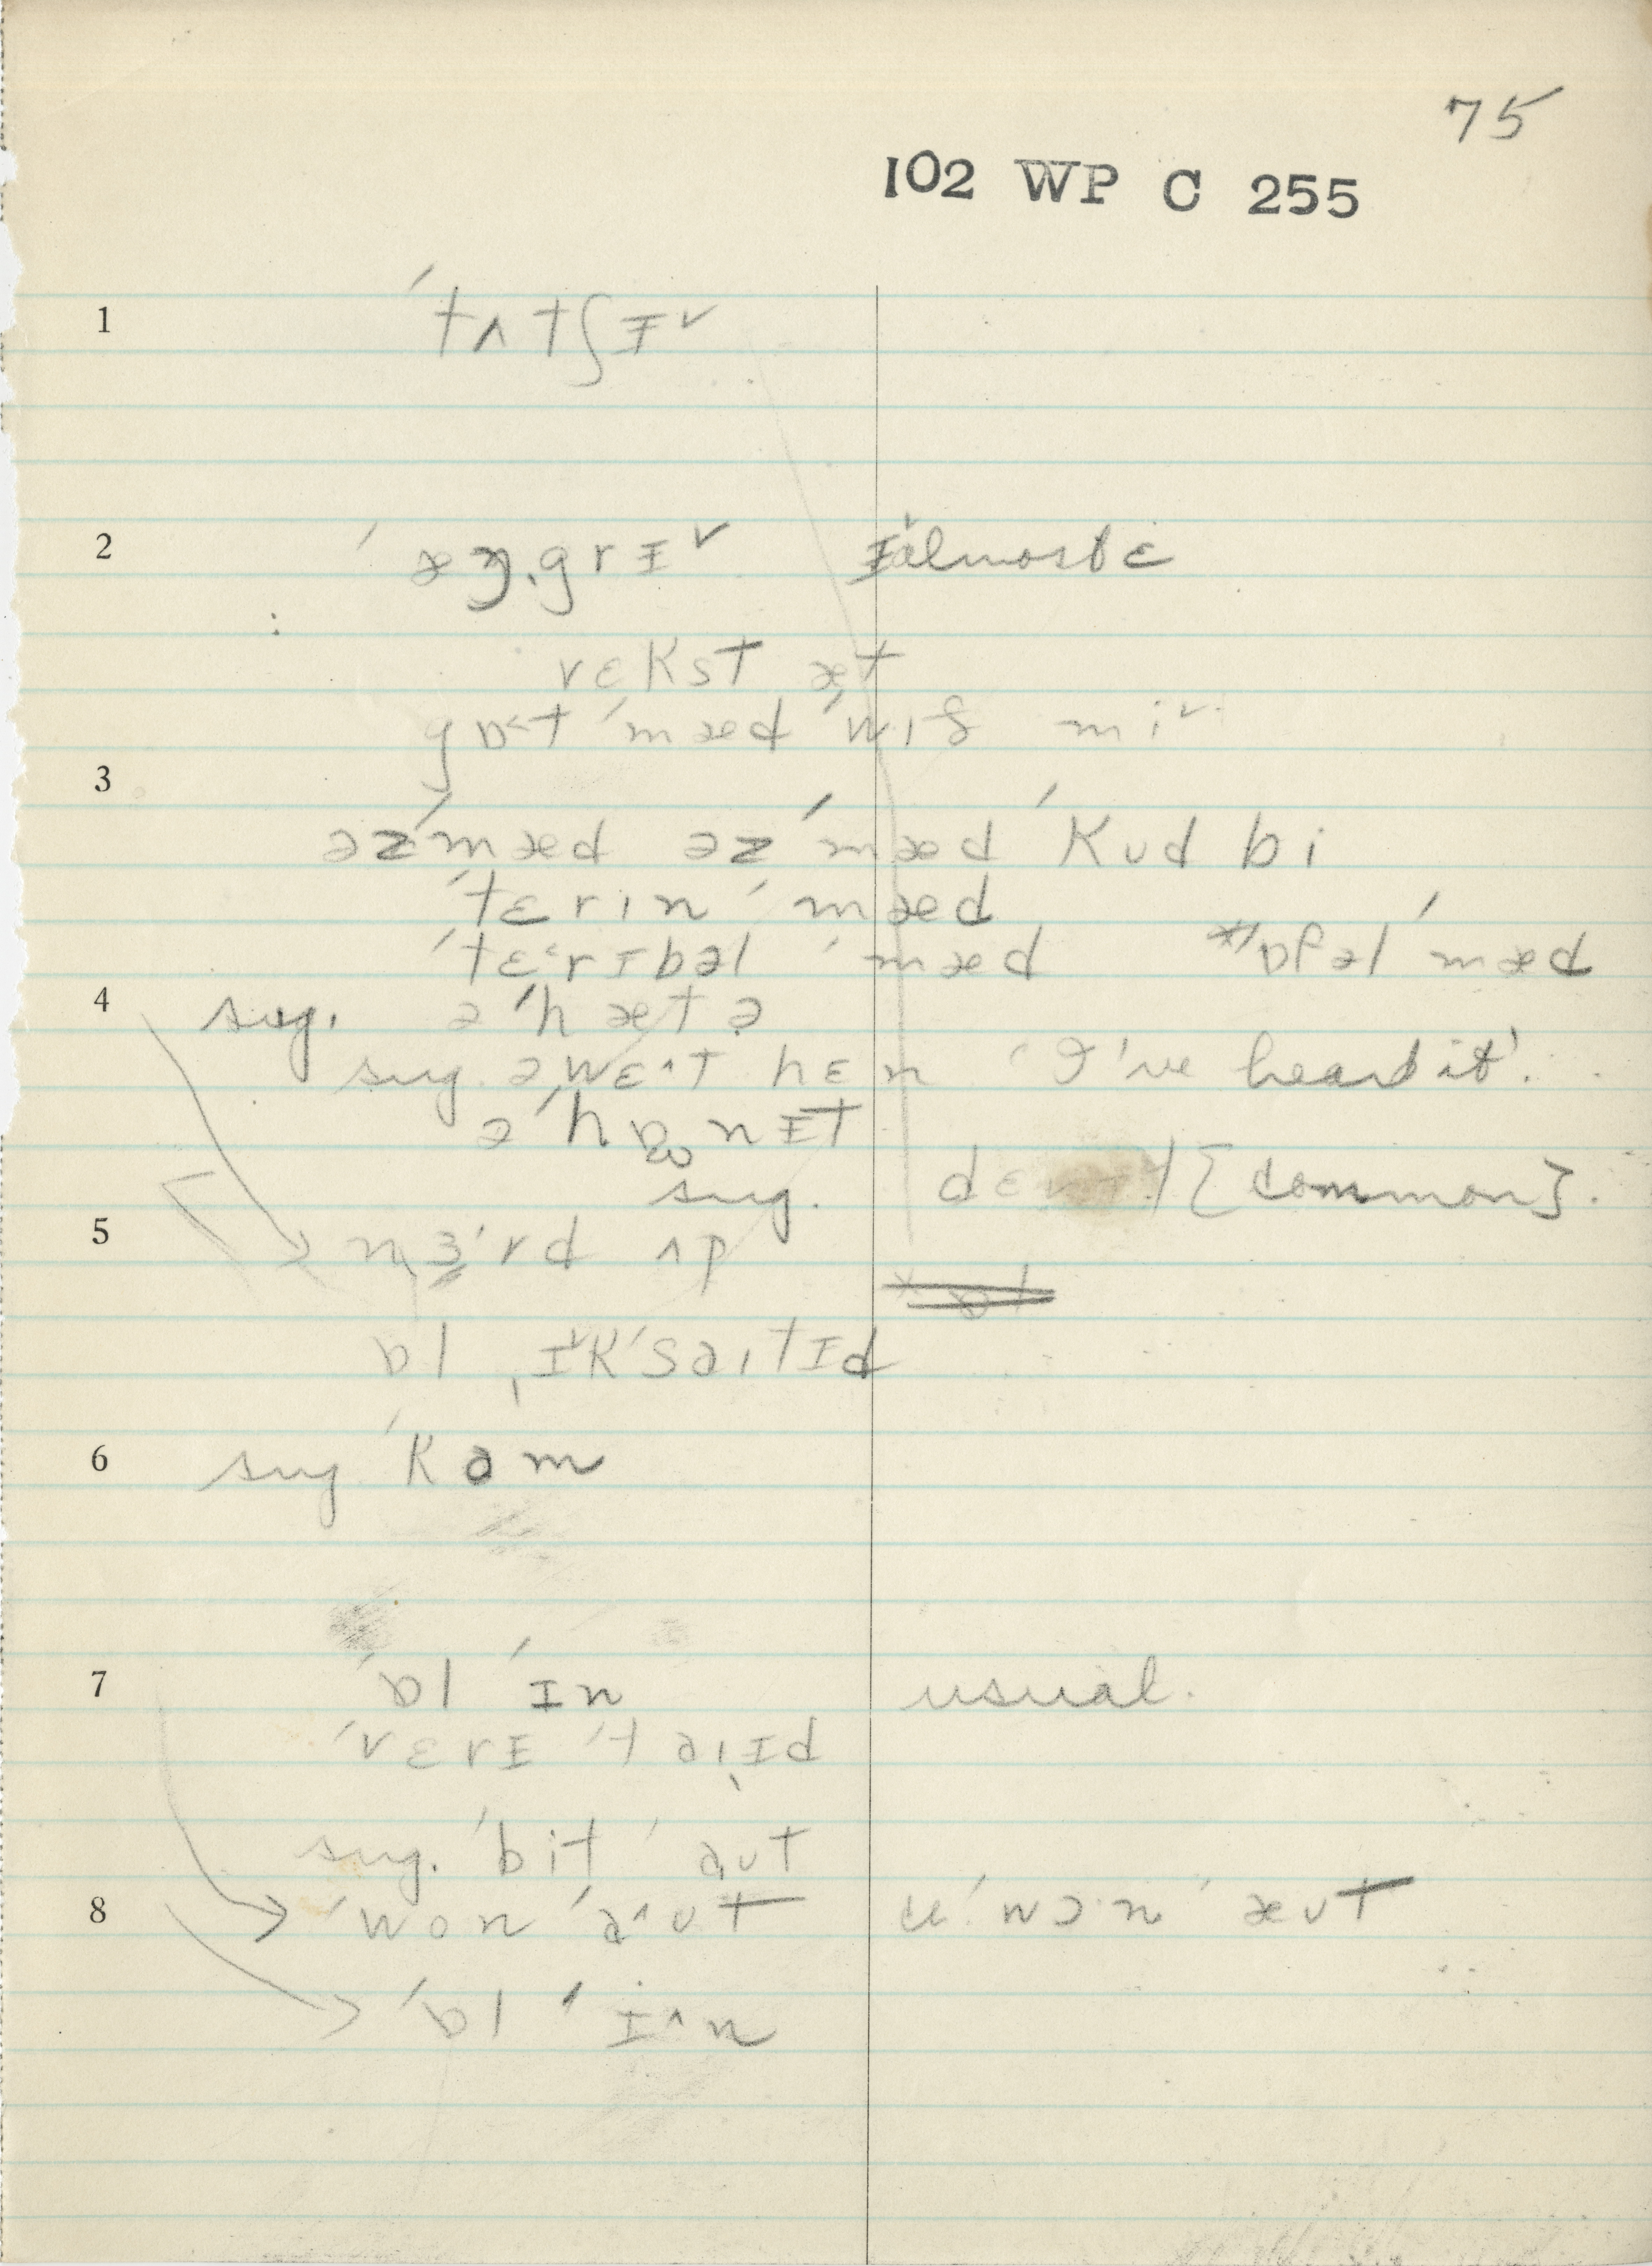 75
102 WP C 255
1 ˈtʌtʃɪ˅
2 ˈæŋ.grɪ˅ ɪ˅ almost ɛ
vɛkst æt
gɒ˂t ˈmæd ˈwɪð mi˅
3
əzˈmæd əz ˈmæd ˈkʊd bi
ˈtɛrɪn ˈmæd
ˈtɛ˂rɪbəl ˈmæd ˈɒfəl ˈmæd
4 sug. ə ˈhætə
sug. əwɛ˄t hɛn 'I've heard it'.
ə ˈhɒnɪt
sug. [common].
5 nɜ˞rd ʌp
ɒl ˌɪ˅kˈsaɪtɪd
6 sug ˈkam
7 ˈɒl ˈɪn usual.
ˈvɛrɪ ˈtaɪɪd
sug. ˈbit ˈaʊt
8 ˈwon ˈa˄ʊt ˈwɔn ˈæʊt
ˈɒl ˈɪ˄n